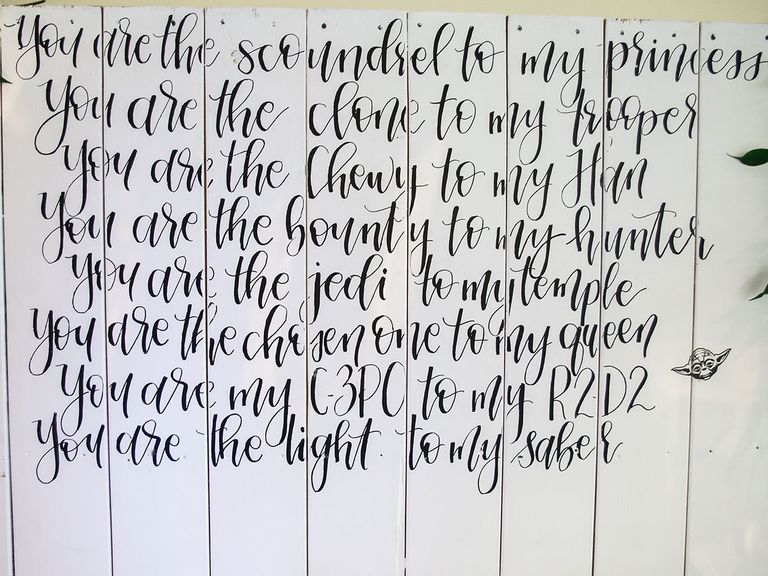 You are the scoundrel to my princess
You are the clone to my trooper
You are the Chewy to my Han
You are the bounty to my hunter
You are the jedi to my temple
You are the chosen one to my queen
You are my C-3PO to my R2D2
You are the light to my saber